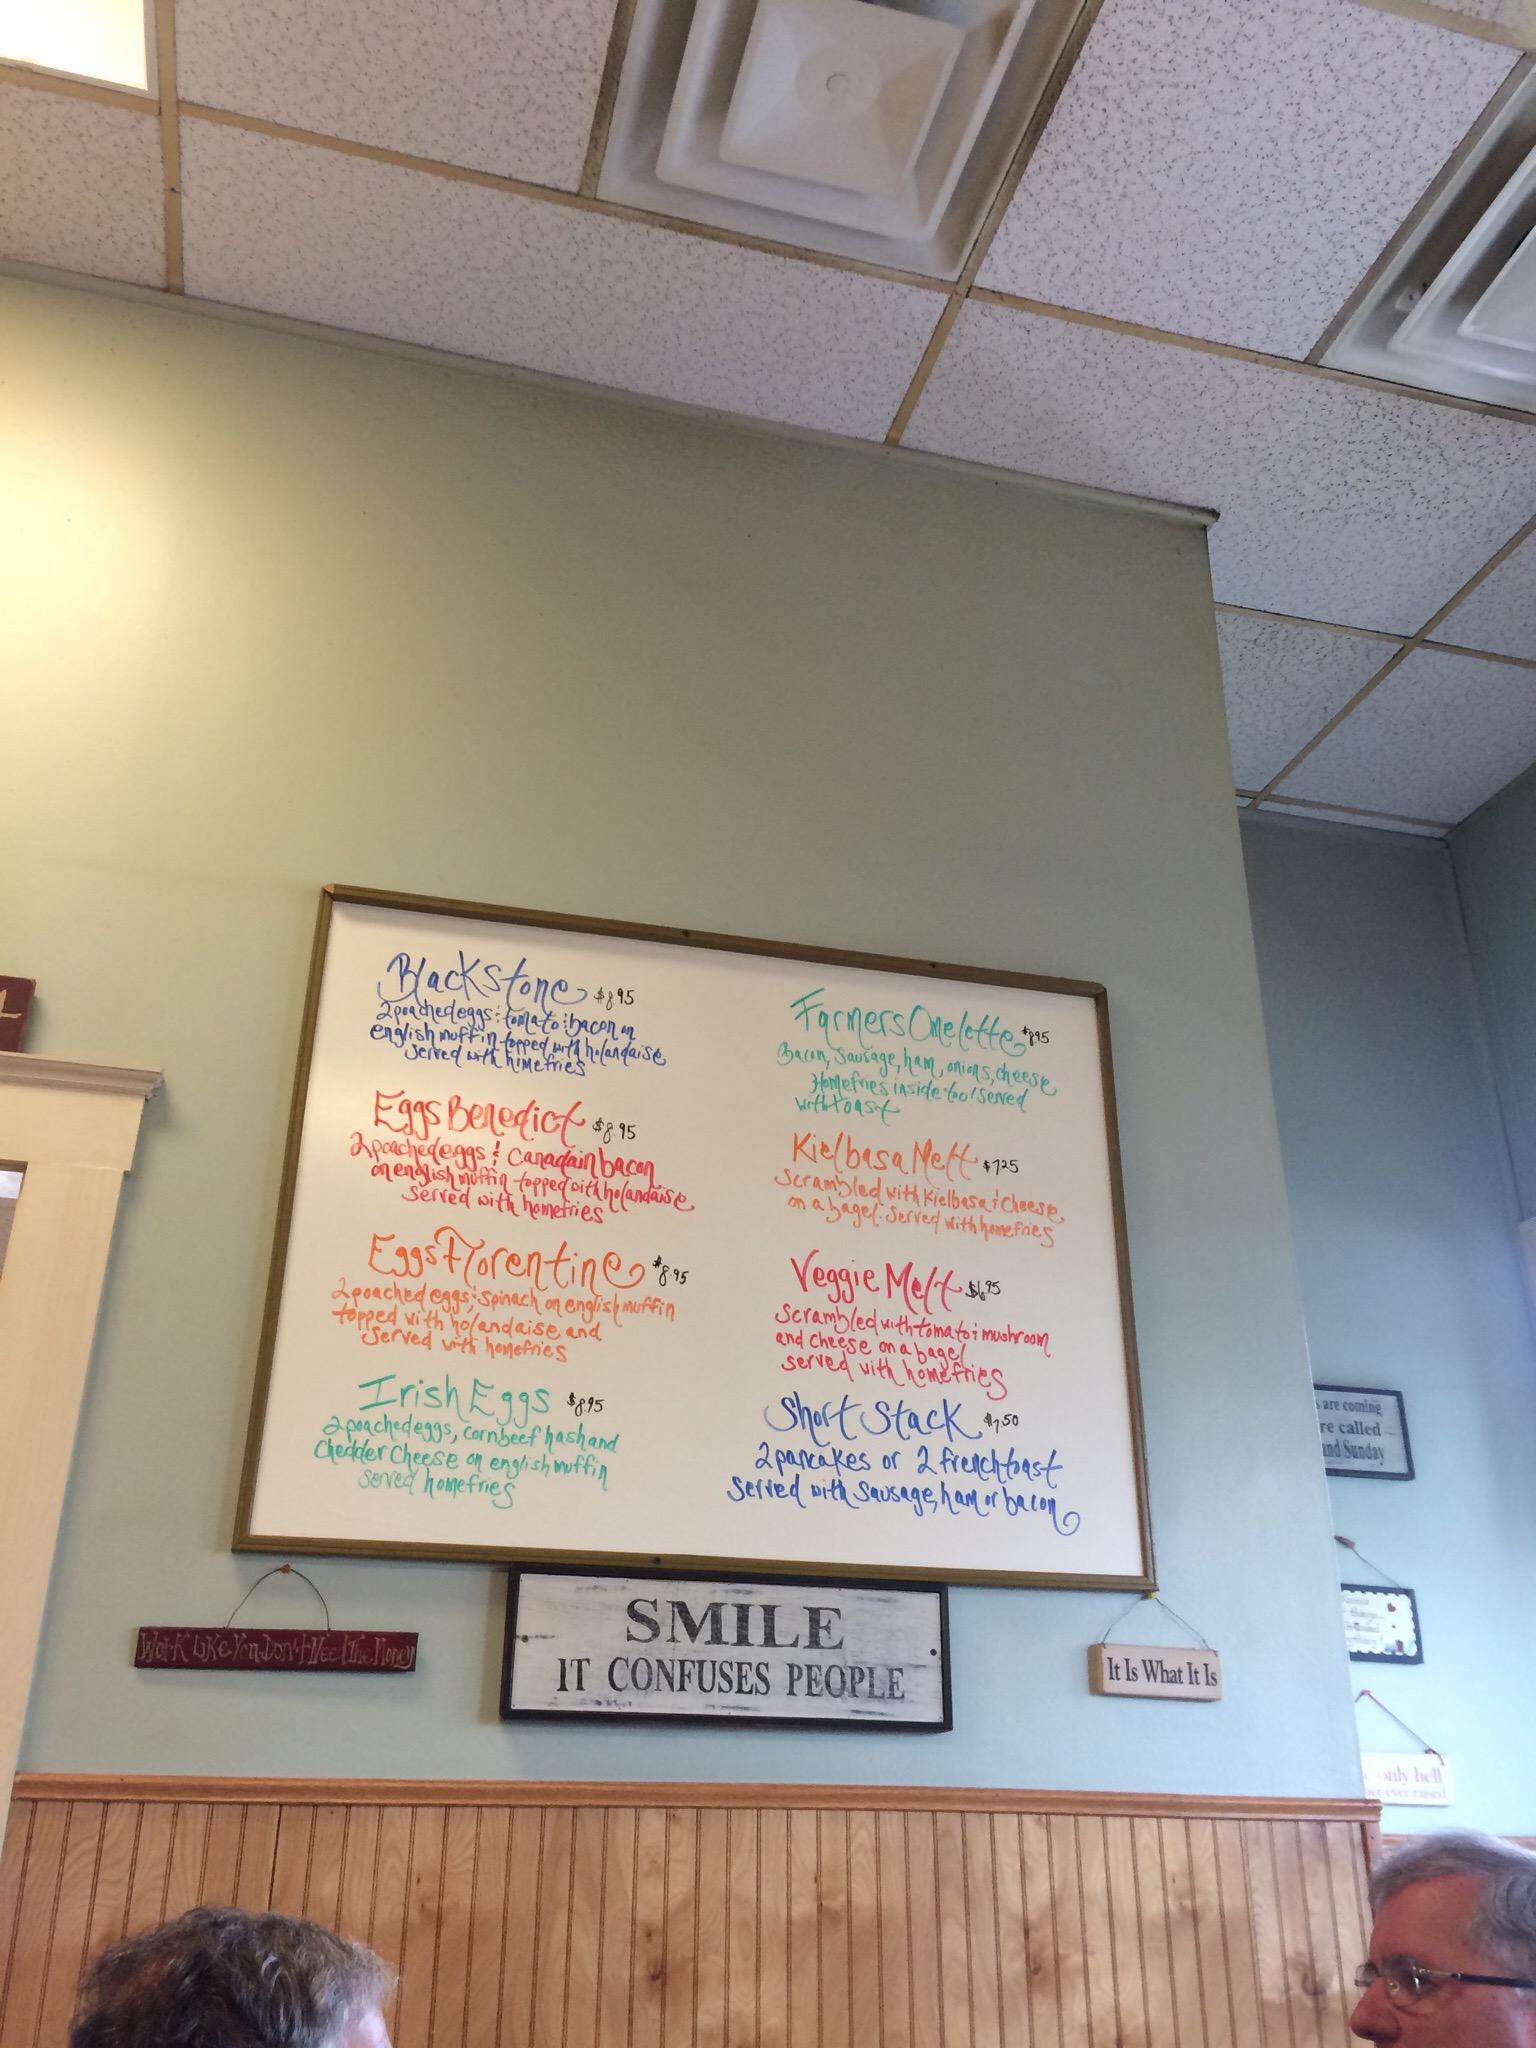 Blackstone $8.95
2 poached eggs & tomato & bacon on
english muffin topped with holandaise
served with himefries
Eggs Benedict $8.95
2 poached eggs & Canadain bacon
on english muffin topped with holandaise
served with homefries
Eggs Florentine $8.95
2 poached eggs & spinach on english muffin
topped with holandaise and
served with homefries
Irish Eggs $8.95
2 poached eggs, cornbeef hash and
Chedder Cheese on english muffin
served homefries
Farmers Omelette $8.95
Bacon, sausage, ham, onions, cheese
Homefries inside too! served
with toast
Kielbasa Melt $7.25
scrambled with Kielbasa & cheese
on a bagel. served with homefries
Veggie Melt $6.95
scrambled with tomato & mushroom
and cheese on a bagel
served with homefries
Short Stack $7.50
2 pancakes or 2 french toast
served with sausage, ham or bacon
Work Like You Don't Need The Money
SMILE
IT CONFUSES PEOPLE
It Is What It Is
are coming
re called
and Sunday
only hell
ever raised